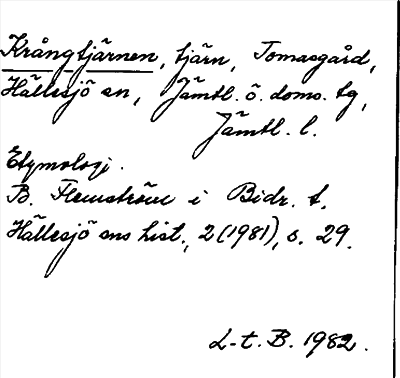 Krångtjärnen, tjärn, Tomasgård,
Hällesjö sn, Jämtl. ö. doms. tg,
Jämtl. l.
Etymologi.
B. Flemström i Bidr. t.
Hällesjö sns hist., 2 (1981), s. 29.
L-t. B. 1982.